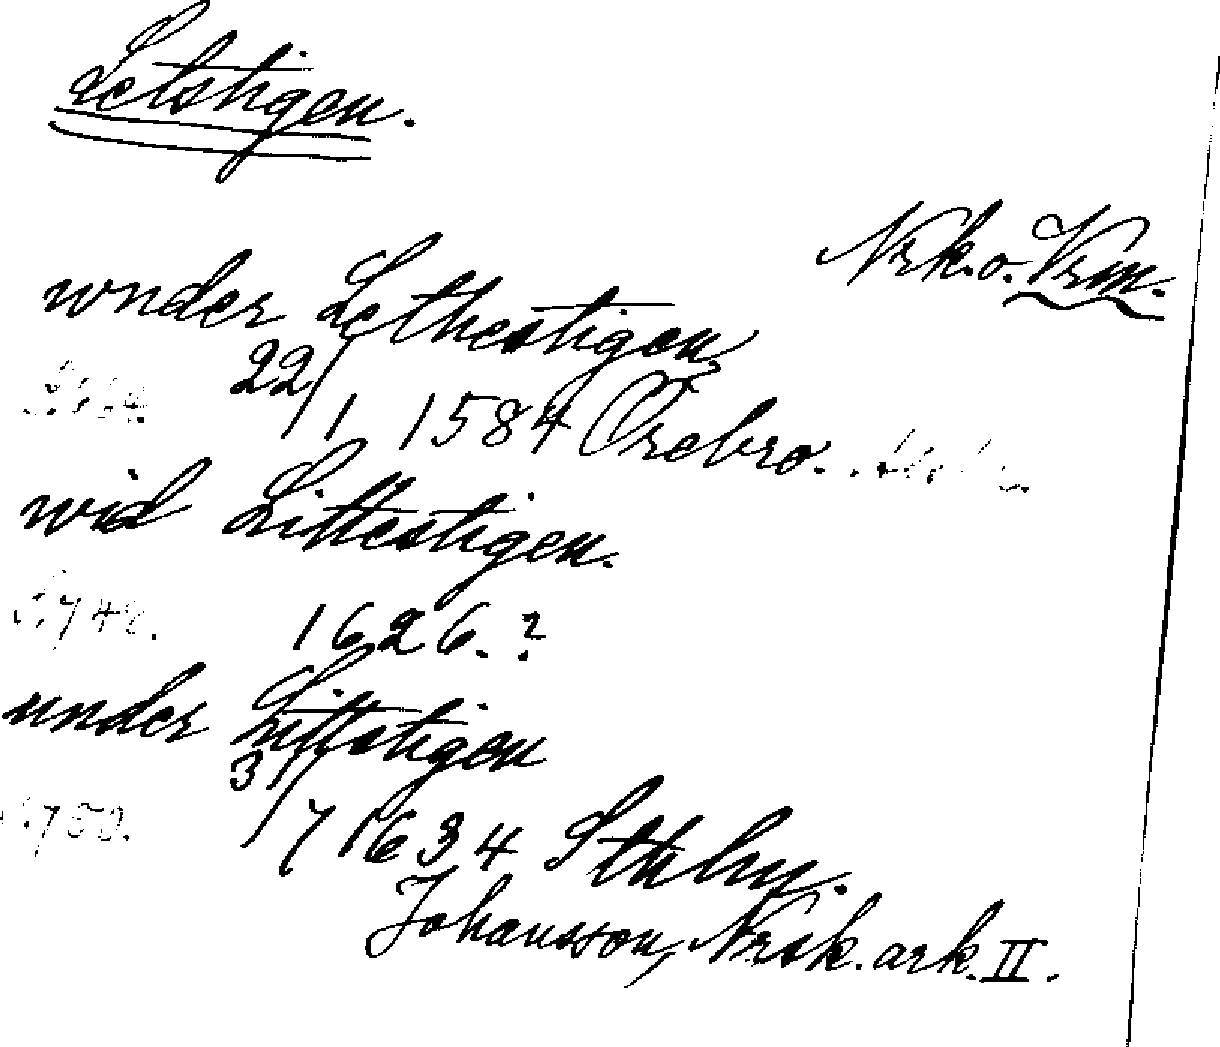 Letstigen.
Nrk. o. Vrm.
wnder Lethestigen,
22/1 1584 Örebro.
wid Littestigen.
S. 748. 1626.?
under Littstigen
3/7 1634 Sthlm.
Johansson, Nrsk. ark. II.